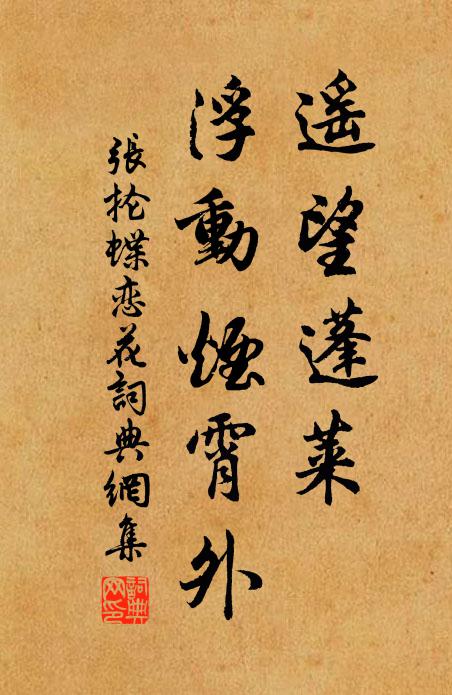 遥望蓬莱
浮動煙霄外
張掄蝶恋花詞典網集
詞典網印